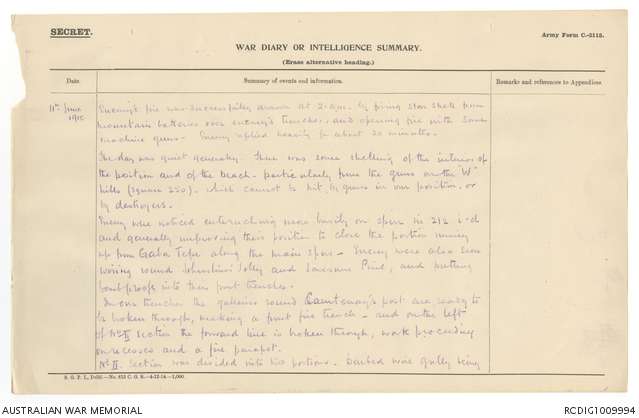 SECRET.
Army Form C.-2118.
WAR DIARY OR INTELLIGENCE SUMMARY.
(Erase alternative heading.)
Date.
Summary of events and information.
Remarks and references to Appendices
11th June
1915
Enemy's fire was successfully drawn at 2 a.m. by firing star shells from
mountain batteries over enemy's trenches, and opening fire with some
machine guns. Enemy replied heavily for about 20 minutes.
The day was quiet generally. There was some shelling of the interior of
the position and of the beach - particularly from the guns on the "W"
hills (square 250). which cannot be hit by guns in our position, or
by destroyers.
Enemy were noticed entrenching more on spurs in 212
and generally improving their position to close the portion running
up from Gaba Tepe along the main spur. Enemy were also seen
round Johnston's Jolly and Lonesome Pine, and putting
bombproofs into their front trenches.
In our trenches the galleries round Courtenay's post are ready to
be broken through, making a front fire trench - and on the left
of No II section the forward line is broken through, work proceeding
on recesses and a fire parapet.
No II. Section was divided into two portions. Barbed wire gully being
S. G. P. I., Delhi.—No. 813 C. G. S.—4-12-14.—1,000.
AUSTRALIAN WAR MEMORIAL
RCDIG1009994